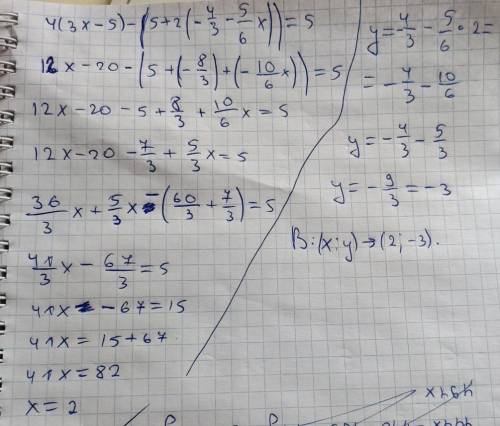 4(3x-5)-(5+2(-4/3-5/6x))=5
12x-20-(5+(-8/3)+(-10/6x))=5
12x-20-5+8/3+10/6x=5
12x-20-7/3+5/3x=5
36/3x+5/3x-(60/3+7/3)=5
41/3x-67/3=5
41x-67=15
41x=15+67
41x=82
x=2
y=-4/3-5/6·2=
=-4/3-10/6
y=-4/3-5/3
y=-9/3=-3
В:(x;y)→(2;-3).